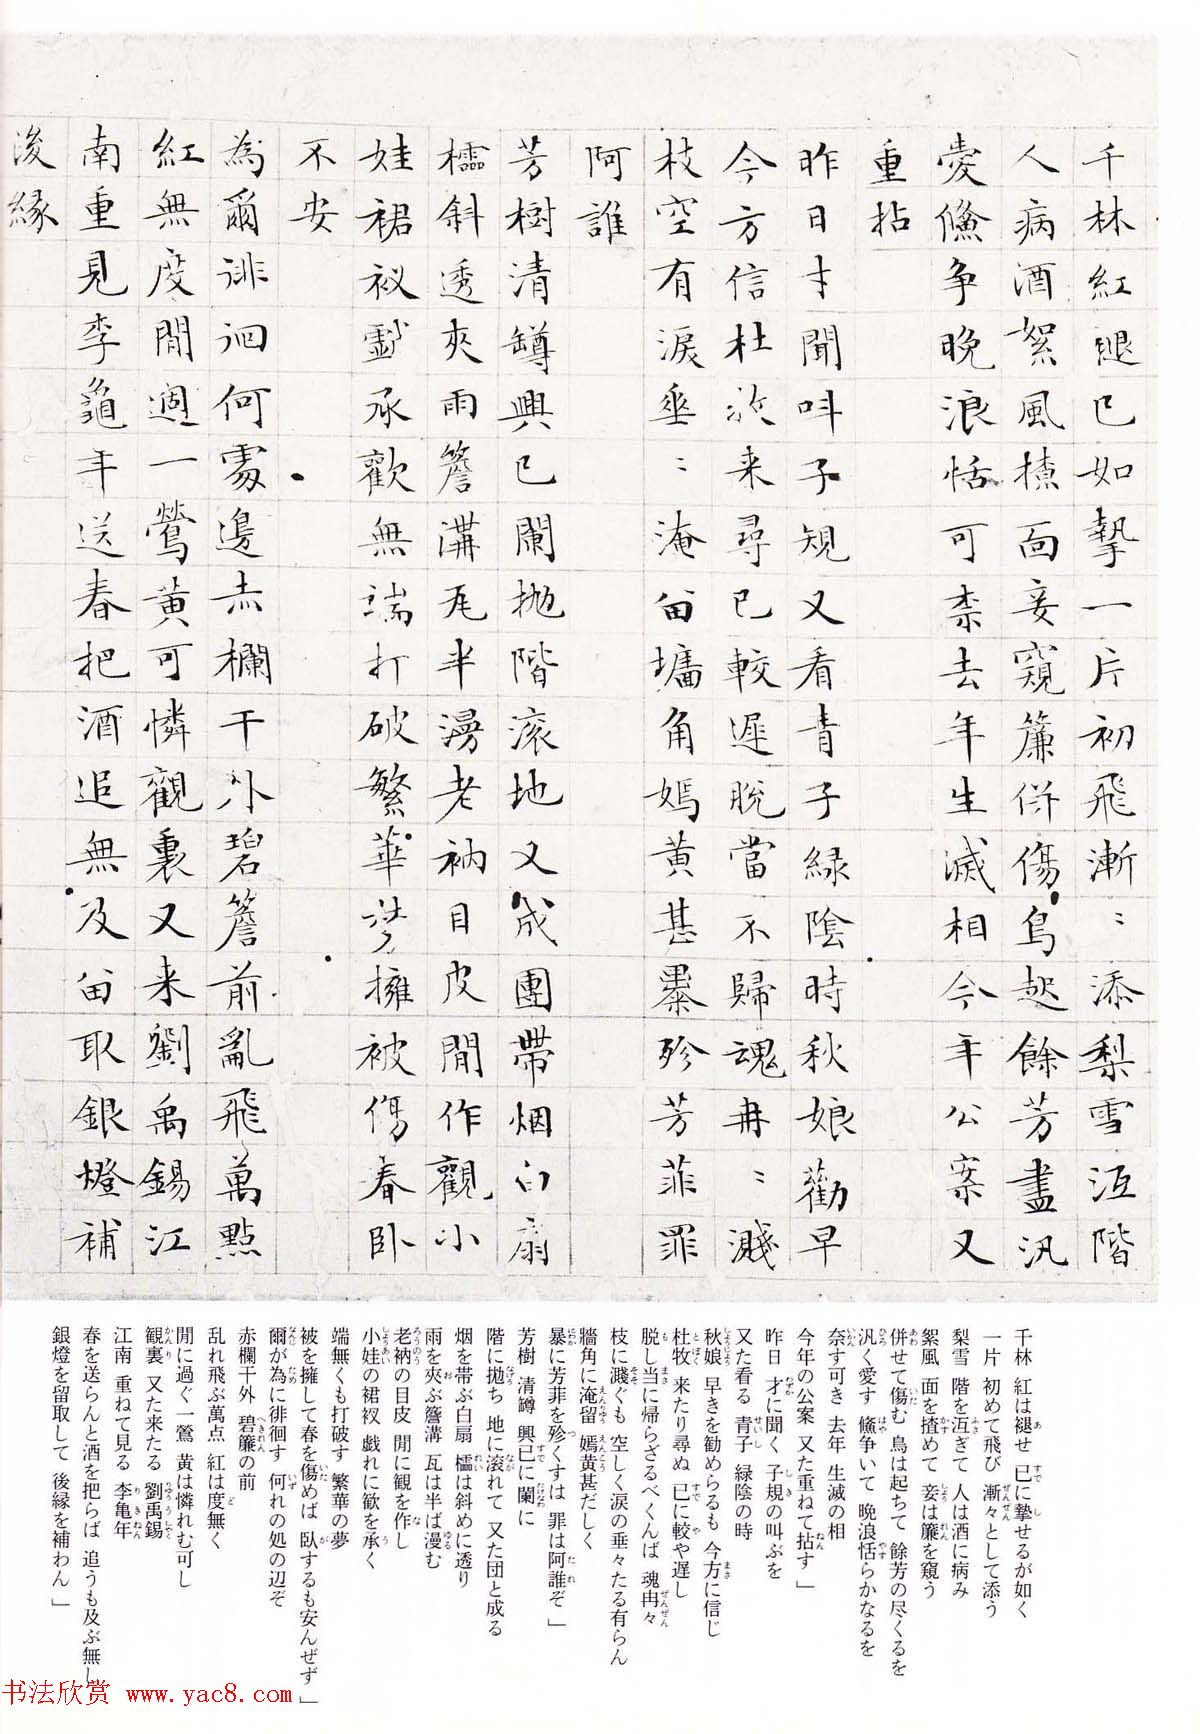 千林紅褪已如摯一片初飛漸〻添梨雪沍階
人病酒絮風揸面妾窺簾併傷鳥起餘芳盡汎
愛鱶争晩浪恬可柰去年生滅相今年公案又
重拈
昨日才聞叫子規又看青子緑陰時秋娘勸早
今方信杜牧来尋已較遲脫當不歸魂冉〻濺
枝空有淚垂〻淹留墻角嫣黄甚暴殄芳菲罪
阿誰
芳樹清罇興已闌拋階滚地又成團帶烟白扇
櫺斜透夾雨簷溝瓦半漫老衲目皮閒作觀小
娃裙衩戯承歡無端打破繁華夢擁被傷春臥
不安
為爾徘徊何處邊赤欄干外碧簷前亂飛萬點
紅無度閒過一鶯黄可憐觀裏又来劉禹錫江
南重見李龜年送春把酒追無及留取銀燈補
後縁
千林 紅は褪せ 已に摯せるが如く
一片 初めて飛び 漸々として添う
梨雪 階を沍ぎて 人は酒に病み
絮風 面を揸めて 妾は簾を窺う
併せて傷む 鳥は起ちて 餘芳の尽くるを
汎く愛す 鱶争いて 晩浪恬らかなるを
奈す可き 去年 生滅の相
今年の公案 又た重ねて拈す」
昨日 才に聞く 子規の叫ぶを
又た看る 青子 緑陰の時
秋娘 早きを勧めらるも 今方に信じ
杜牧 来たり尋ぬ 已に較や遅し
脱し当に帰らざるべくんば 魂冉々
枝に濺ぐも 空しく涙の垂々たる有らん
牆角に淹留 嫣黄甚だしく
暴に芳菲を殄くすは 罪は阿誰ぞ」
芳樹 清罇 興已に闌に
階に拋ち 地に滚れて 又た団と成る
烟を帯ぶ白扇 櫺は斜めに透り
雨を夾ぶ簷溝 瓦は半ば漫む
老衲の目皮 閒に観を作し
小娃の裙衩 戯れに歓を承く
端無くも打破す 繁華の夢
被を擁して春を傷めば 臥するも安んぜず」
爾が為に徘徊す 何れの処の辺ぞ
赤欄干外 碧簾の前
乱れ飛ぶ萬点 紅は度無く
閒に過ぐ一鶯 黄は憐れむ可し
観裏 又た来たる 劉禹錫
江南 重ねて見る 李亀年
春を送らんと酒を把らば 追うも及ぶ無し
銀燈を留取して 後縁を補わん」
书法欣赏 www.yac8.com